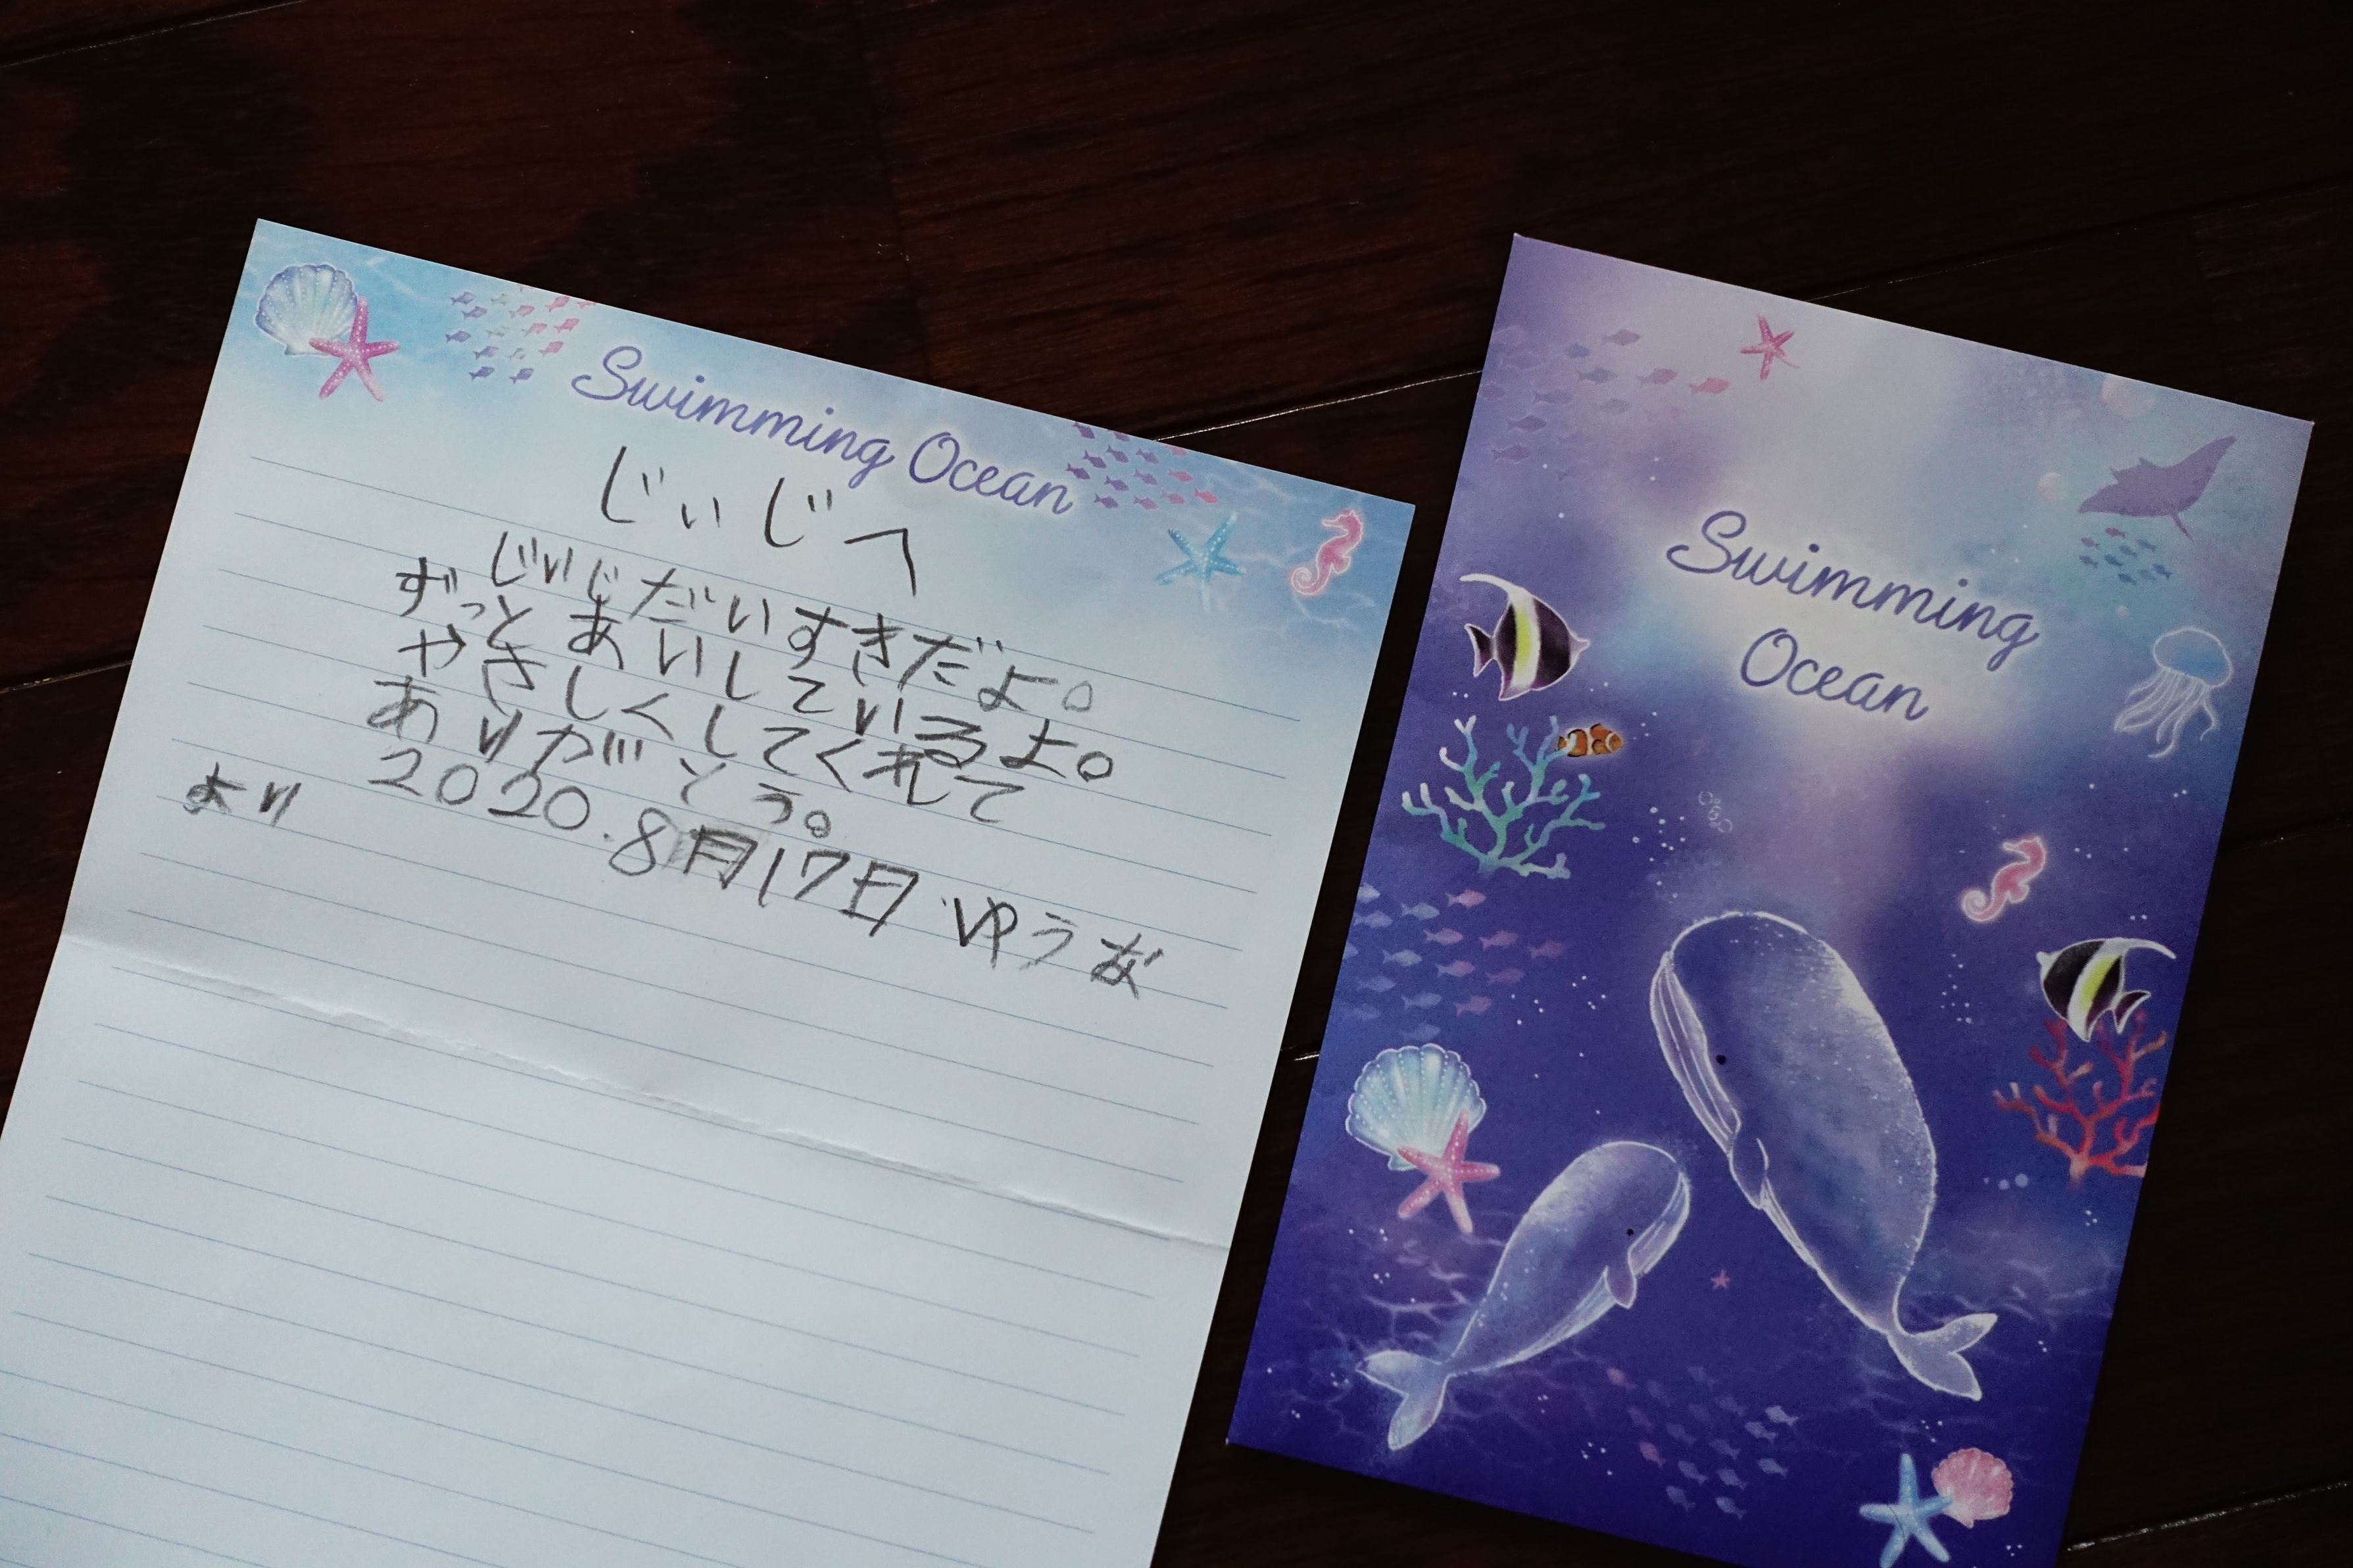 Swimming Ocean
じぃじへ
じいじだいすきだよ。
ずっとあいしているよ。
やさしくしてくれて
ありがとう。
2020.8月17日 ゆうな
より
Swimming
Ocean